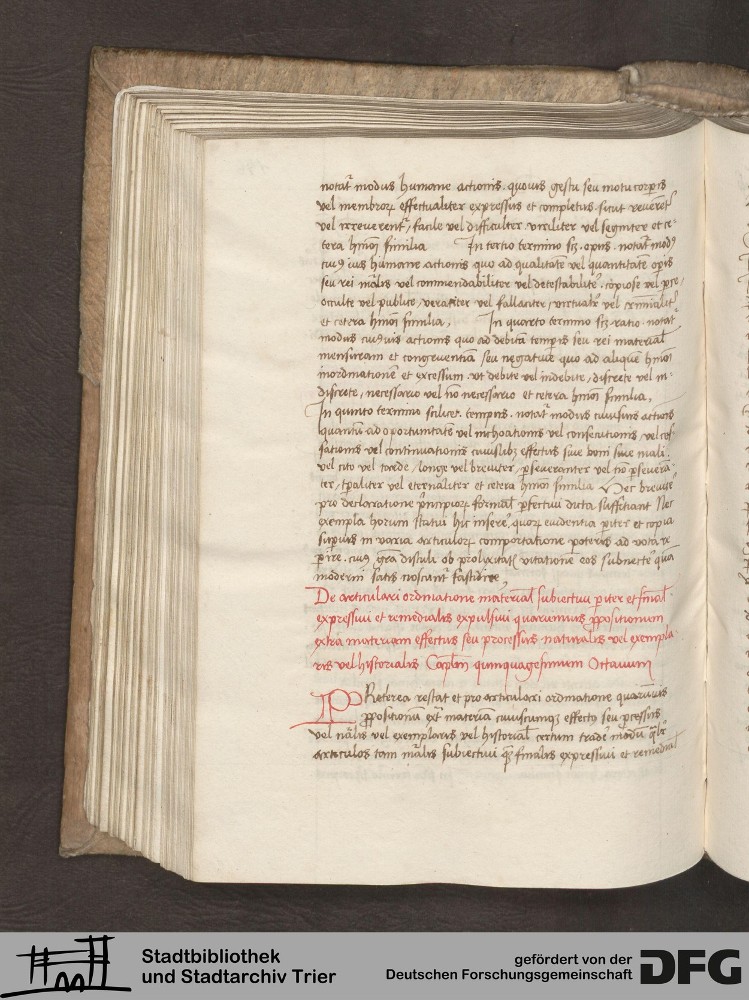 notat modus humane actionis. quovis gestu seu motu corporis
vel membrorum effectualiter expressus et completus. sicut reverenter
vel irreverenter, facile vel difficulter. viriliter vel segniter et ce-
tera huiusmodi similia In tercio termino scilicet. operis. notatur modus
humane actionis quo ad qualitatem vel quantitatem operis
seu rei vel commendabiliter vel detestabiliter. copiose vel
occulte vel publice, veraciter vel fallaciter, virtualiter vel criminaliter
et cetera huiusmodi similia, In quarto termino scilicet ratio. notatur
modus actionis quo ad debitam temporis seu rei material
mensuram et congruentiam seu negative quo ad aliquem
inordinationem et excessum. ut debite vel indebite, discrete vel in-
discrete, necessario vel non necessario et cetera huiusmodi similia,
In quinto termino scilicet. temporis. notatur modus cuiusvis actionis
quantum ad oportunitatem vel inchoationis vel consecutionis, vel ces-
sationis vel continuationis cuiuslibet effectus sive boni sive mali.
vel cito vel tarde, longe vel breviter, perseveranter vel non persevera-
ter, temporaliter vel eternaliter et cetera huiusmodi similia Hec
pro declaratione principiorum perfectivi dicta, sufficiant Nec
exempla horum hic inserere, quorum evidentia pariter et copia
in varia articulorum comportatione poteris ad vota
gratia distuli ob prolixitatis vitationem eos subnectere qua
moderni satis noscunt fastidire,
De articulari ordinatione material subiectivi pariter et final
expressivi et remedialis expulsivi quarumvis propositionum
extra materiam effectus seu processus naturalis vel exempla-
ris vel historialis Capitulum quinquagesimum Octavum
PReterea restat et pro articulari ordinatione quarumvis
propositionum extra materiam cuiuscumque effectus seu processus
vel naturalis vel exemplaris vel historial certum tradere modum
articulos tam subiectivi finalis expressivi et remedial
Stadtbibliothek
und Stadtarchiv Trier
gefördert von der
Deutschen Forschungsgemeinschaft
DFG